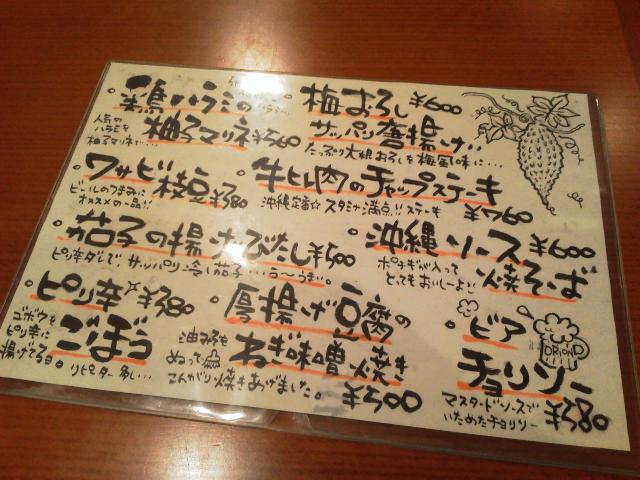 鶏ハラミの
柚子マリネ ¥560
人気の
ハラミを
柚子マリネで…
梅おろし ¥600
サッパリ唐揚げ!!
たっぷり大根おろしを梅風味に…
ワサビ枝豆 ¥380
ビールのつまみに
オススメの一品!!
牛ヒレ肉のチャップステーキ
沖縄定番☆スタミナ満点!!ステーキ
¥760
茄子の揚げびたし ¥500
ピリ辛ダレで、サッパリ冷し茄子…う〜うまい。
沖縄ソース ¥600
焼そば
ポチギが入って
とってもおいしーよ!!
ピリ辛 ¥380
ごぼう
ゴボウを
ピリ辛に
揚げてるヨ。
リピーター多し…
厚揚げ豆腐の
ねぎ味噌焼き
油みそを
ぬって
こんがり焼きあげました。
¥500
ビア
チョリソー
ORION
マスタードソースで
いためたチョリソー
¥580